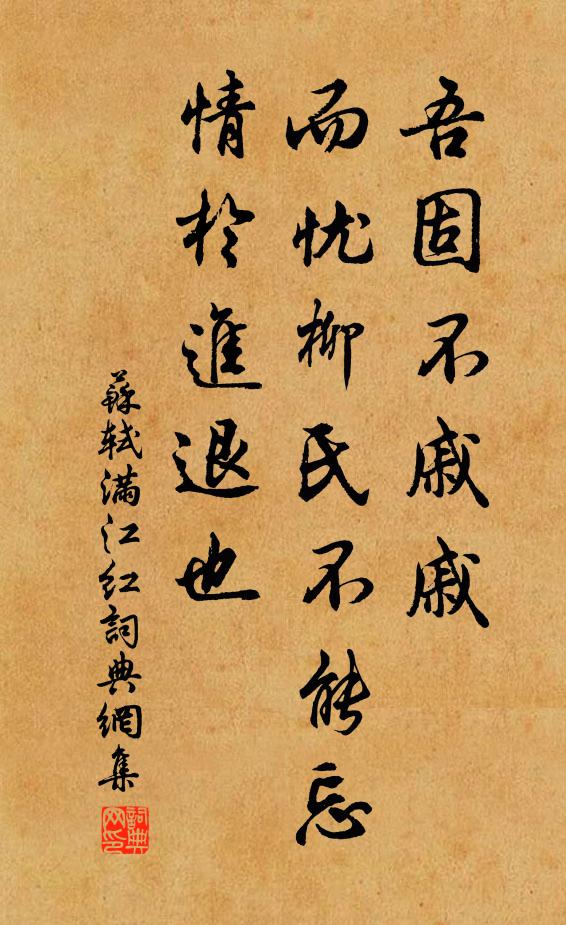 吾固不戚戚
而忧柳氏不能忘
情於進退也
蘇轼滿江红詞典網集
詞典网印